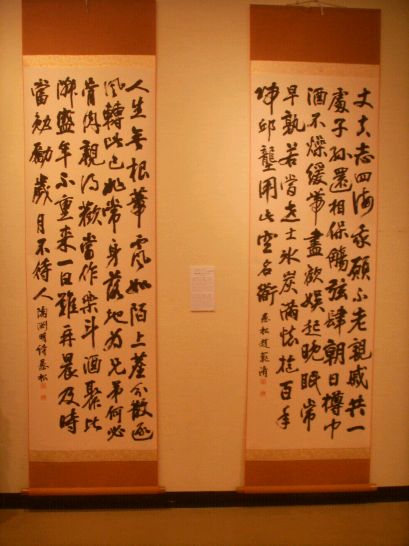 丈夫志四海我願不老親戚共一
處子孫還相保觴弦肆朝日樽中
酒不燥緩帶盡歡娛起晚眠常
早孰若當世士冰炭滿懷抱百年
歸邱壟用此空名道
人生無根蒂飄如陌上塵分散逐
風轉此已非常身落地為兄弟何必
骨肉親得歡當作樂斗酒聚比
鄰盛年不重來一日難再晨及時
當勉勵歲月不待人 陶淵明詩